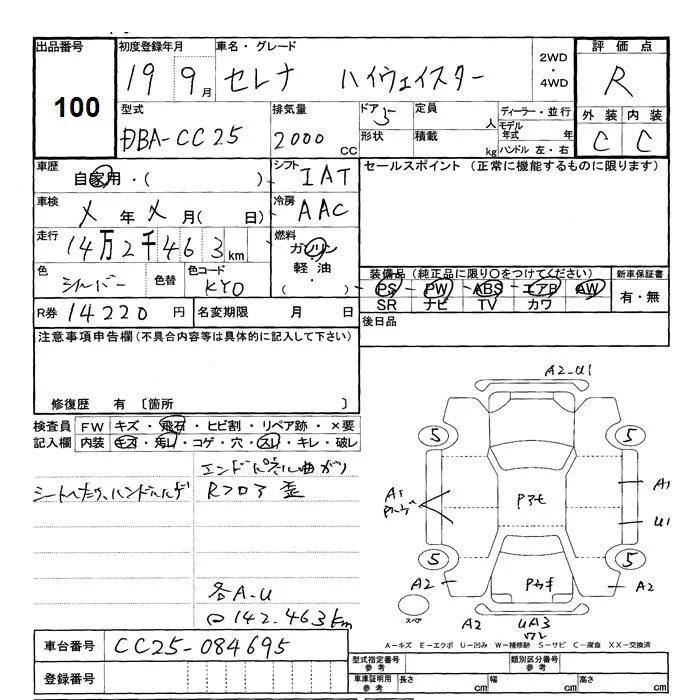 出品番号 初度登録年月 車名・グレード 2WD・4WD 評価点
100 19 9月 セレナ ハイウェイスター R
型式 排気量 ドア 5 定員 人 ディーラー・並行 外装 内装
DBA-CC25 2000 CC 形状 積載 kg モデル年式 年 ハンドル 左・右 C C
車歴 自家用・( ) シフト IAT セールスポイント (正常に機能するものに限ります)
車検 X 年 X 月( 日) 冷房 AAC
走行 14万2千463km 燃料 ガソリン 軽油 ( )
色 シルバー 色替 色コード KY0 装備品(純正品に限り○をつけてください) 新車保証書
PS PW ABS エアB AW 有・無
SR ナビ TV カワ
R券 14220 円 名変期限 月 日 後日品
注意事項申告欄(不具合内容等は具体的に記入して下さい)
修復歴 有 〔箇所 〕
検査員 FW キズ・飛石・ヒビ割・リペア跡・×要
記入欄 内装 キズ・汚レ・コゲ・穴・スレ・キレ・破レ
エンドパネル曲がり
シートへたり、ハンドルハゲ Rフロア歪
各A.U
142.463km
A2-U1
5 5
A1 Pアモ A1
U1
5 5
A2 A2
スペア A2 UA3
ワレ
A-キズ E-エクボ U-凹み W-補修跡 S-サビ C-腐食 XX-交換済
車台番号 CC25-084695
登録番号
型式指定番号 参考 類別区分番号 参考
車庫証明用 参考 長さ cm 幅 cm 高さ cm